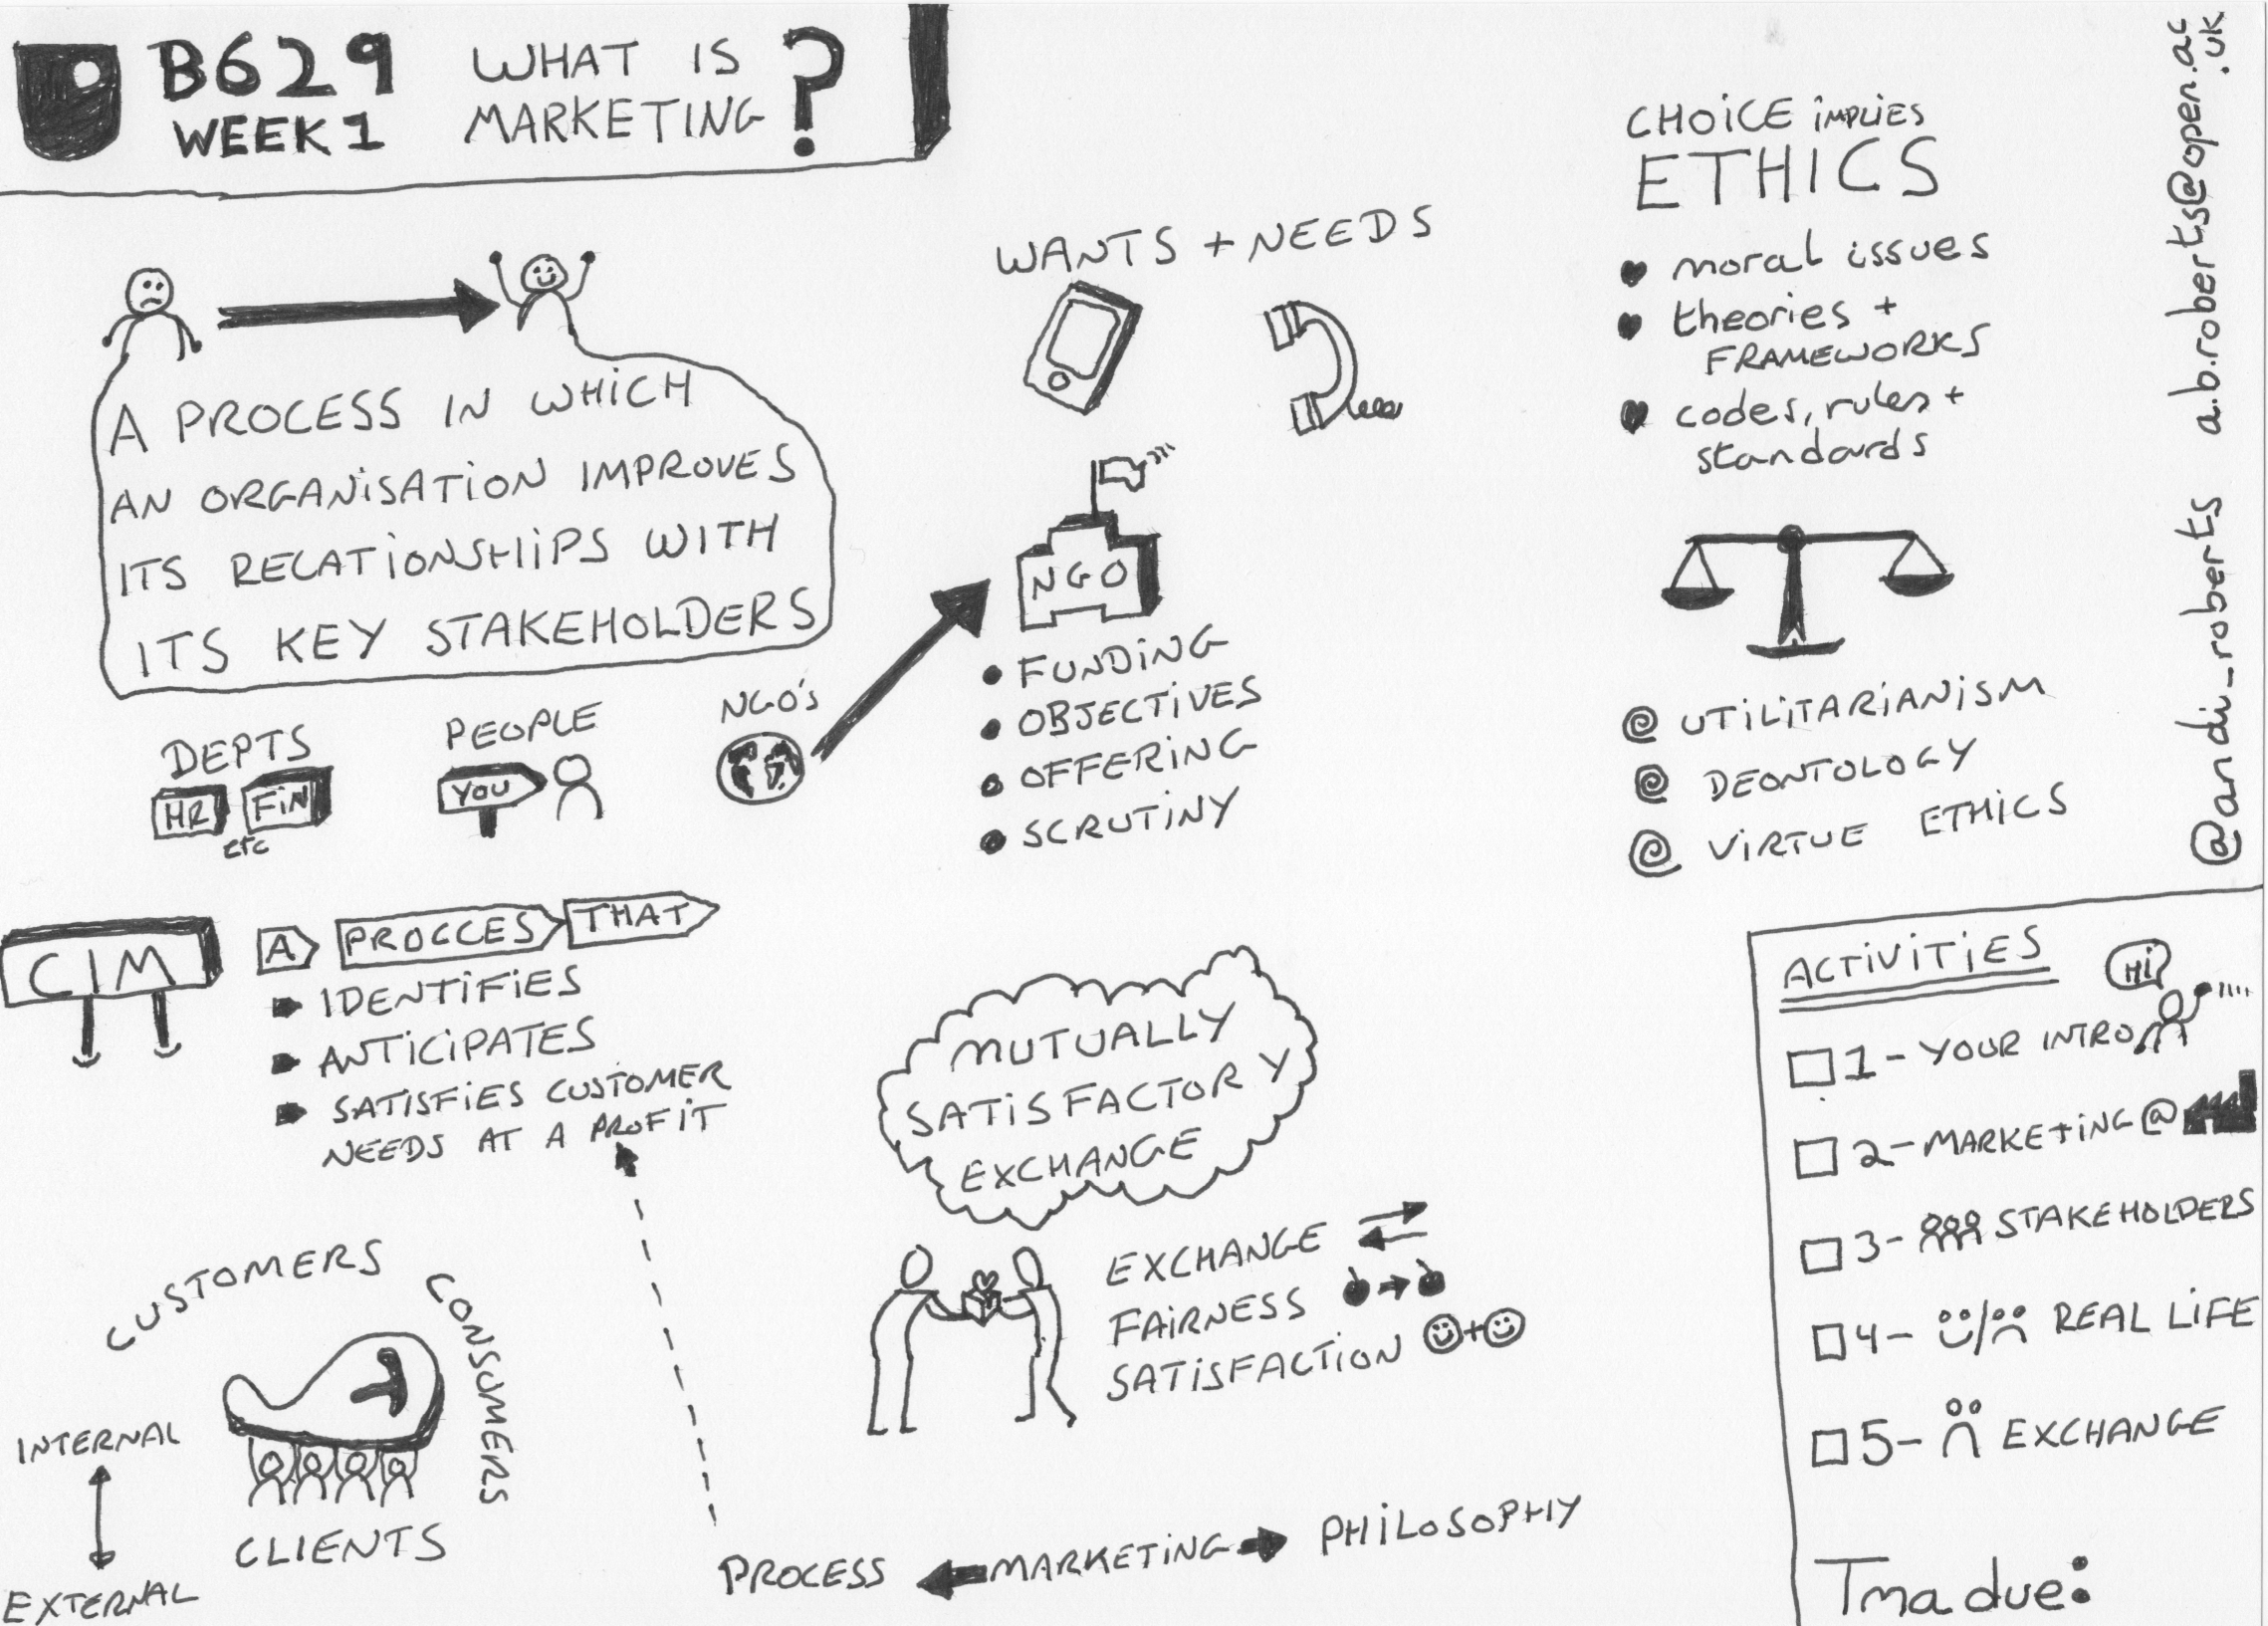 B629
WEEK 1
WHAT IS
MARKETING ?
A PROCESS IN WHICH
AN ORGANISATION IMPROVES
ITS RELATIONSHIPS WITH
ITS KEY STAKEHOLDERS
DEPTS
HR
FIN
etc
PEOPLE
YOU
NGO's
WANTS + NEEDS
NGO
• FUNDING
• OBJECTIVES
• OFFERING
• SCRUTINY
CHOICE IMPLIES
ETHICS
♥ moral issues
♥ theories +
FRAMEWORKS
♥ codes, rules +
standards
UTILITARIANISM
DEONTOLOGY
VIRTUE ETHICS
@andi_roberts a.b.roberts@open.ac
.uk
CIM
A PROCCES THAT
IDENTIFIES
ANTICIPATES
SATISFIES CUSTOMER
NEEDS AT A PROFIT
CUSTOMERS
CONSUMERS
CLIENTS
INTERNAL
EXTERNAL
MUTUALLY
SATISFACTORY
EXCHANGE
EXCHANGE
FAIRNESS
SATISFACTION
PROCESS MARKETING PHILOSOPHY
ACTIVITIES
Hi
1 - YOUR INTRO
2 - MARKETING @
3 - STAKEHOLDERS
4 - REAL LIFE
5 - EXCHANGE
Tma due: